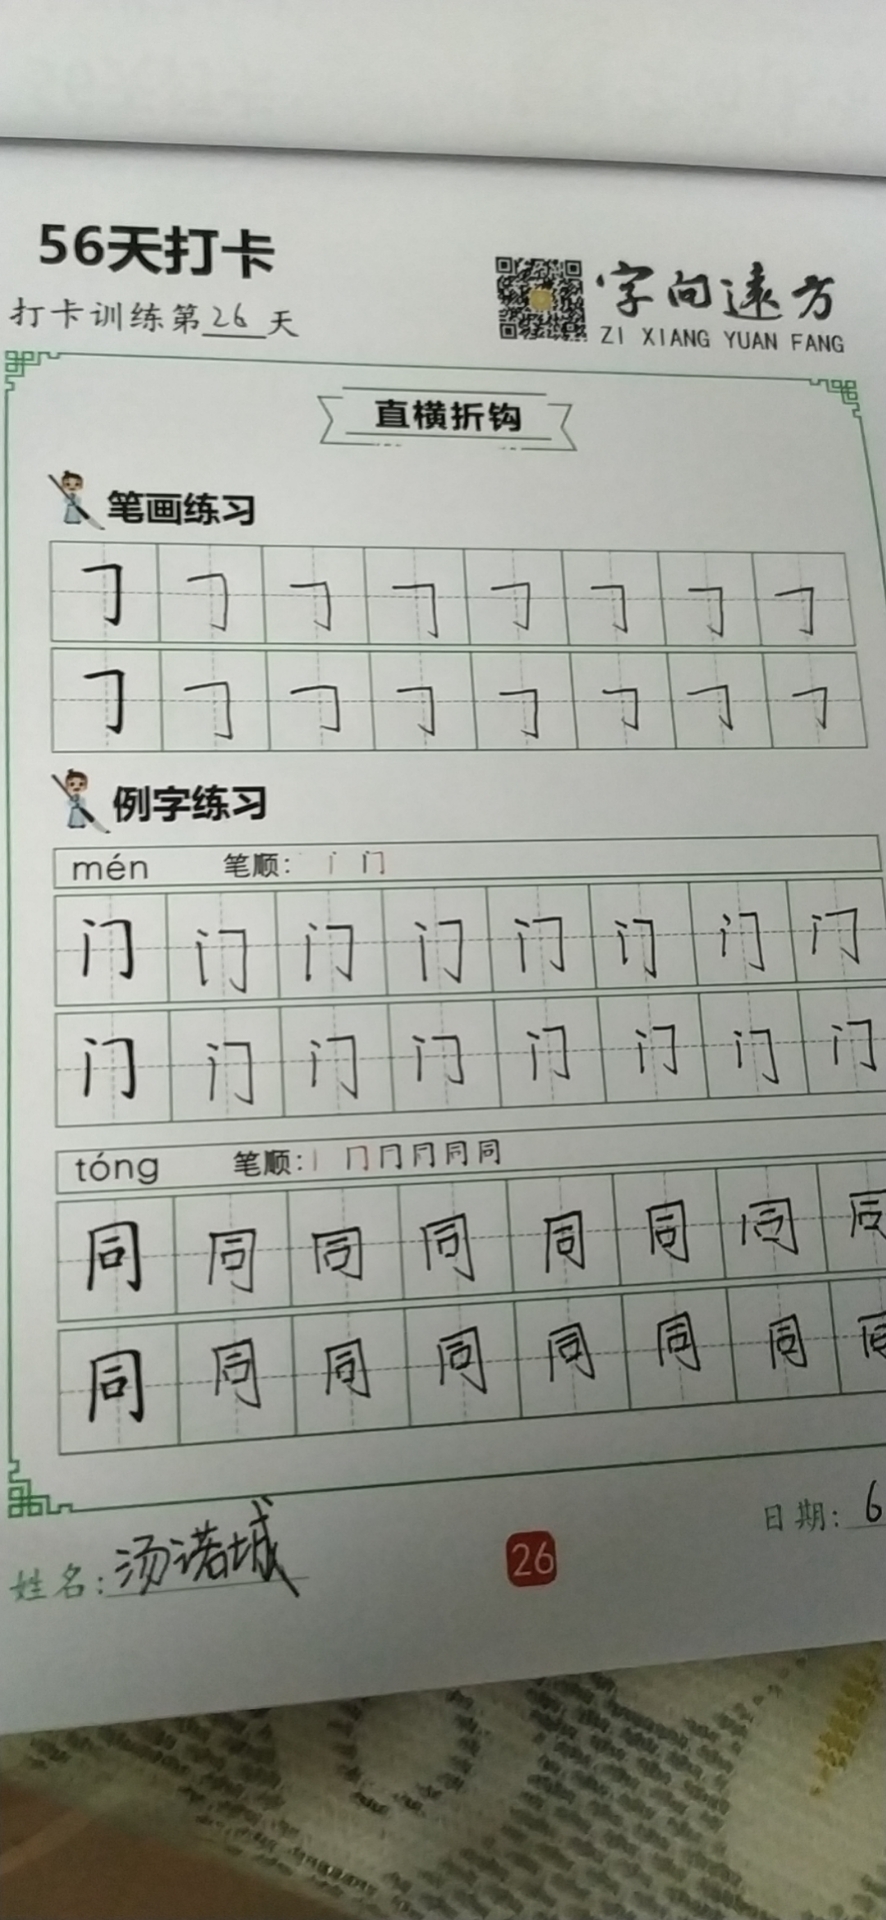 56天打卡
打卡训练第26天
字向远方
ZI XIANG YUAN FANG
直横折钩
笔画练习
𠃌 𠃌 𠃌 𠃌 𠃌 𠃌 𠃌 𠃌
𠃌 𠃌 𠃌 𠃌 𠃌 𠃌 𠃌 𠃌
例字练习
mén 笔顺: 门
门 门 门 门 门 门 门 门
门 门 门 门 门 门 门 门
tóng 笔顺: 丨 冂 同 同
同 同 同 同 同 同 同 同
同 同 同 同 同 同 同 同
姓名: 汤诺城
26
日期: 6